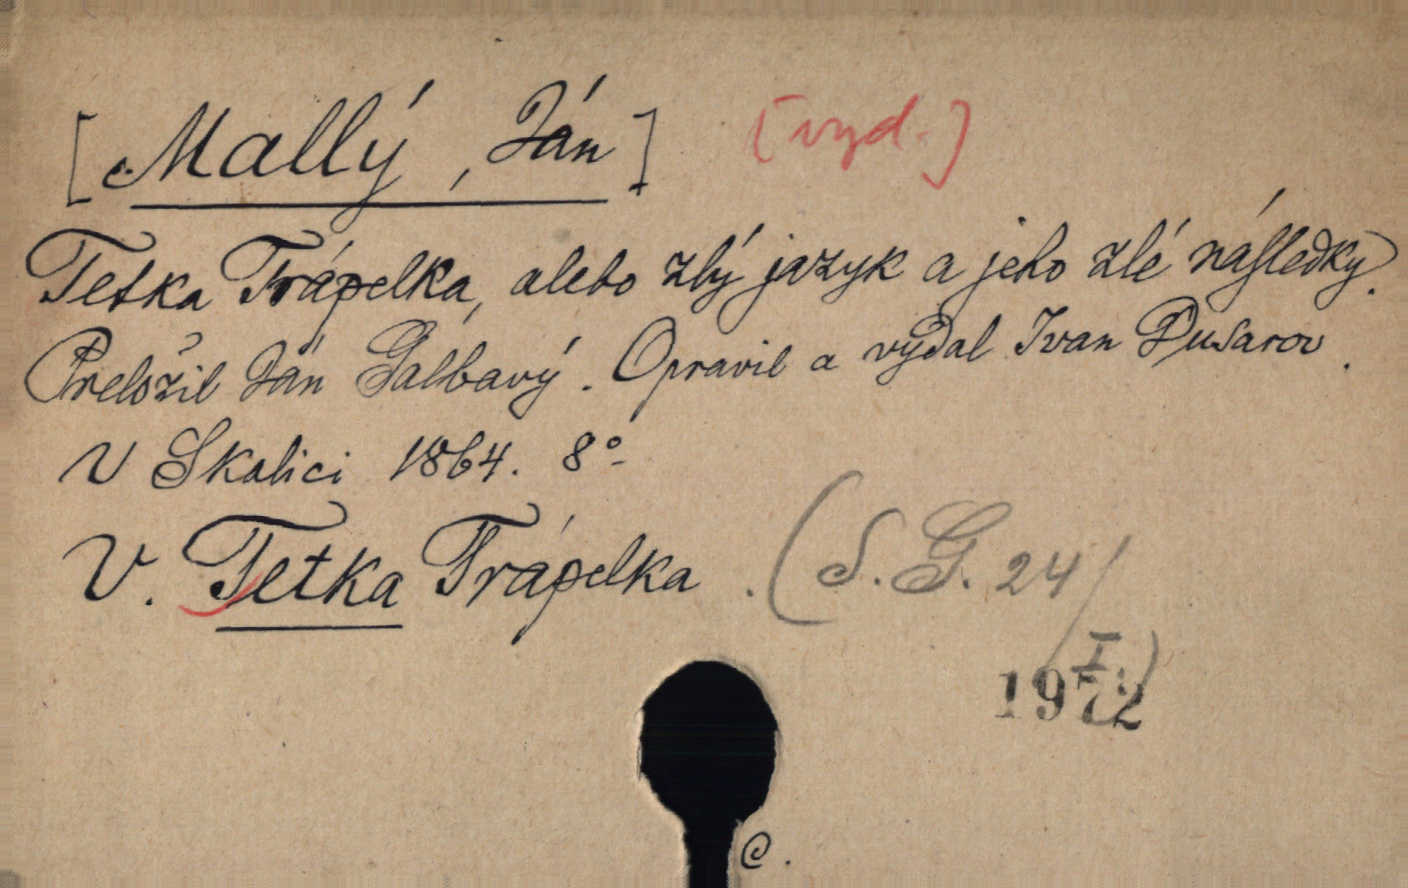 [Mallý, Ján] [vyd.]
Tetka Trápelka, alebo zlý jazyk a jeho zlé následky.
Preložil Ján Galbavý. Opravil a vydal Ivan Dusarov.
V Skalici 1864. 8°
V. Tetka Trápelka. (S. G. 24/I)
1972
C.